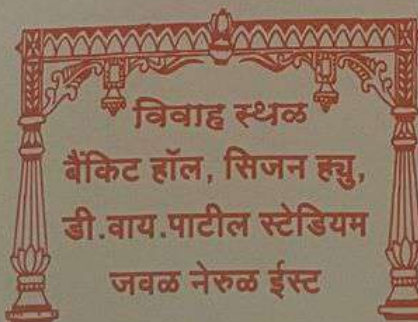 विवाह स्थळ
बैंकिट हॉल, सिजन ह्यु,
डी.वाय.पाटील स्टेडियम
जवळ नेरुळ ईस्ट